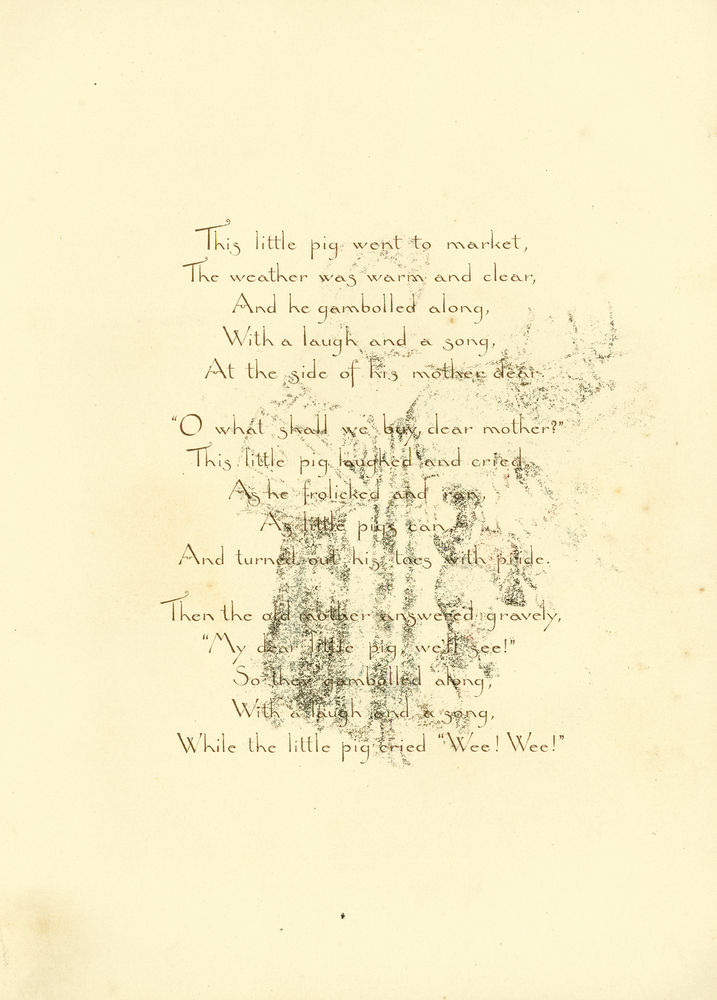 This little pig went to market,
The weather was warm and clear,
And he gambolled along,
With a laugh and a song,
At the side of his mother dear.
“O what shall we buy, dear mother?”
This little pig laughed and cried,
As he frolicked and ran,
As little pigs can,
And turned out his toes with pride.
Then the old mother answered gravely,
“My dear little pig, we'll see!”
So they gambolled along,
With a laugh and a song,
While the little pig cried “Wee! Wee!”